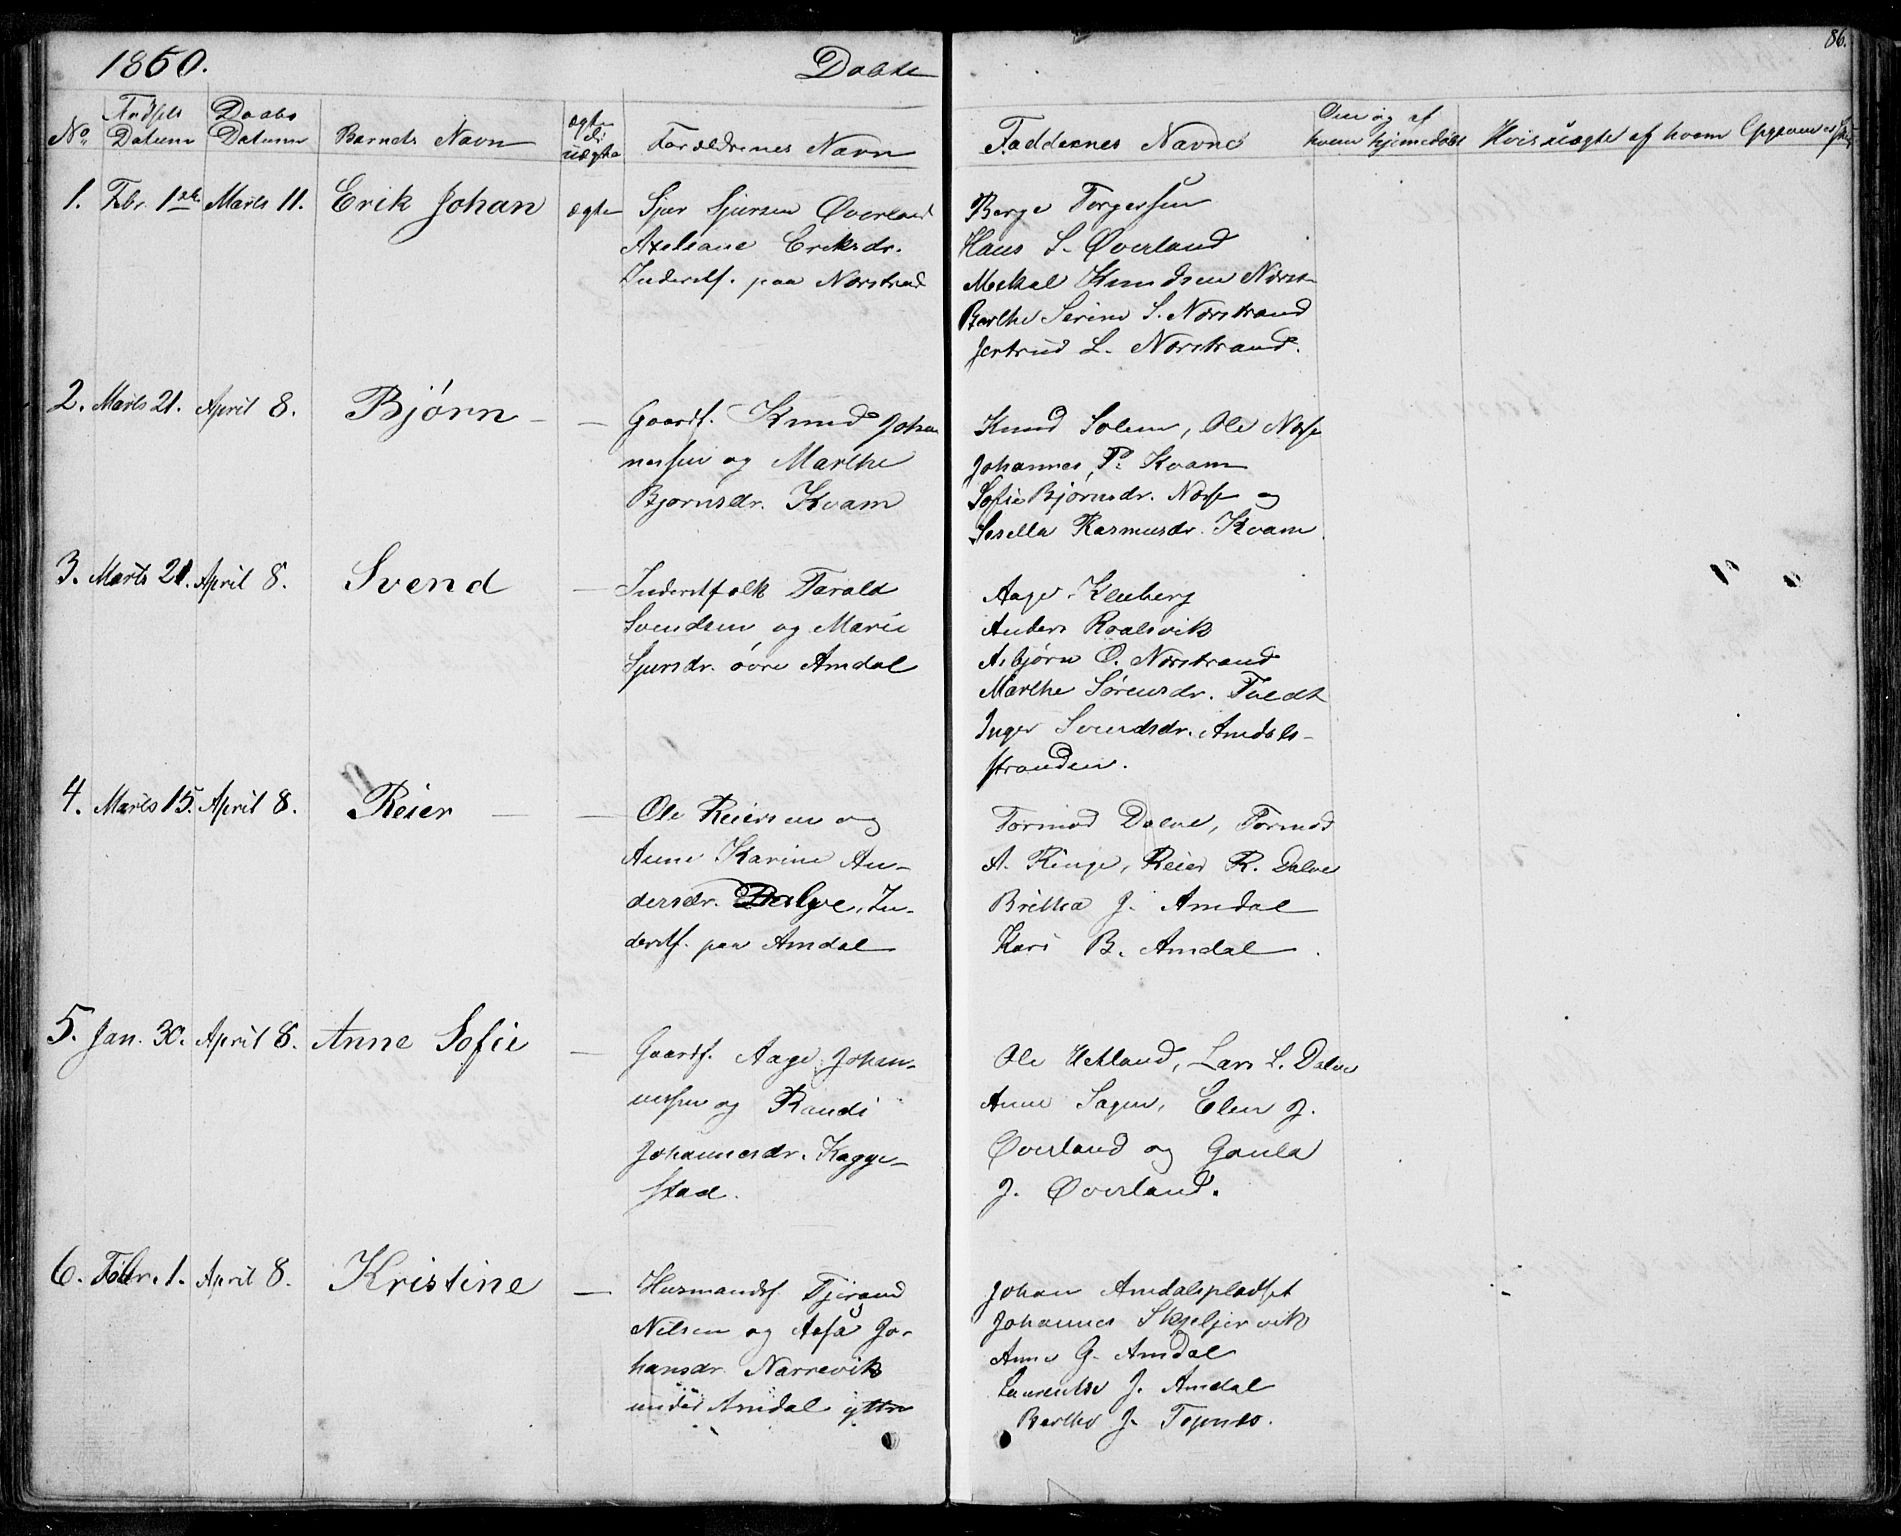 1860.
Døbte
86.
No
Fødsels Datum
Daabs Datum
Barnets Navn
ægte el. uægte
Forældrenes Navn
Faddernes Navne
Om og af hvem hjemmedøbt
Hvis uægte af hvem Opgaven er
1. Febr. 1ste Marts 11. Erik Johan ægte
Sjur Sjursen Øverland
Axeliane Eriksdr.
Inderstf. paa Norstrand
Berge Torgersen
Hans S. Øverland
Mekal Knudsen Norst-
Berthe Serine S. Norstrand
Jertrud L. Norstrand.
2. Marts 21. April 8. Bjørn - -
Gaardf. Knud Johan
nessen og Marthe
Bjørnsdr. Kvam
Knud Solem, Ole Næse
Johannes P. Kvam
Sofie Bjørnsdr. Næse og
Sesella Rasmusdr. Kvam
3. Marts 21. April 8. Svend -
Inderstfolk Tarald
Svendsen og Marie
Sjursdr. øvre Amdal
Aage Kleiberg
Anders Roalsvik
Asbjørn O. Norstrand
Marthe Sørensdr. Tvedt
Inger Svendsdr. Amdals-
stranden.
4. Marts 15. April 8. Reier - -
Ole Reiersen og
Anne Karine An-
dersdr. Dalve, In-
derstf. paa Amdal
Tormod Dalve, Tormod
A. Ringe, Reier R. Dalve
Britha J. Amdal
Kari B. Amdal
5. Jan. 30. April 8. Anne Sofie -
Gaardf. Aage Johan-
nessen og Randi
Johannesdr. Kagge-
stad.
Ole Hetland, Lars L. Dalve
Anne Sagen, Elen J.
Øverland og Gaula
J. Øverland.
6. Febr. 1. April 8. Kristine -
Husmandsf. Tjerand
Nilsen og Aasa Jo-
hansdr. Narrevik
under Amdal yttre
Johan Amdalspladset
Johannes Skjeljervik
Anne G. Amdal
Laurentse J. Amdal
Berthe J.